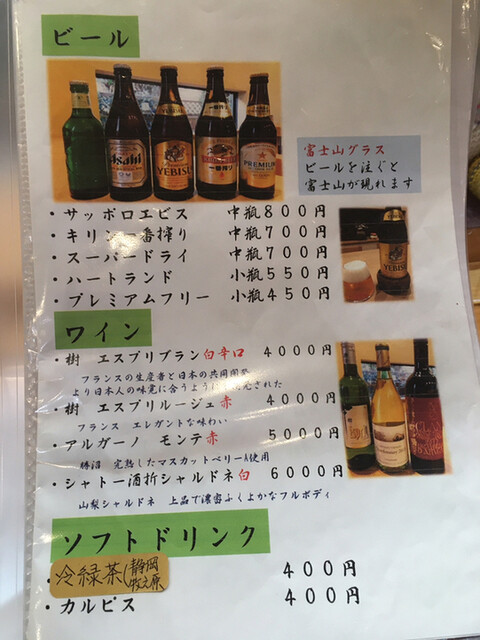 ビール
Asahi
YEBISU
一番搾り
PREMIUM
富士山グラス
ビールを注ぐと
富士山が現れます
・サッポロエビス 中瓶800円
・キリン一番搾り 中瓶700円
・スーパードライ 中瓶700円
・ハートランド 小瓶550円
・プレミアムフリー 小瓶450円
YEBISU
ワイン
・樹 エスプリブラン白辛口 4000円
フランスの生産者と日本の共同開発
より日本人の味覚に合うように 元された
・樹 エスプリルージュ赤 4000円
フランス エレガントな味わい
・アルガーノ モンテ赤 5000円
勝沼 完熟したマスカットベリーA使用
・シャトー酒折シャルドネ白 6000円
山梨シャルドネ 上品で濃密ふくよかなフルボディ
ソフトドリンク
・冷緑茶(静岡牧之原 400円
・カルピス 400円